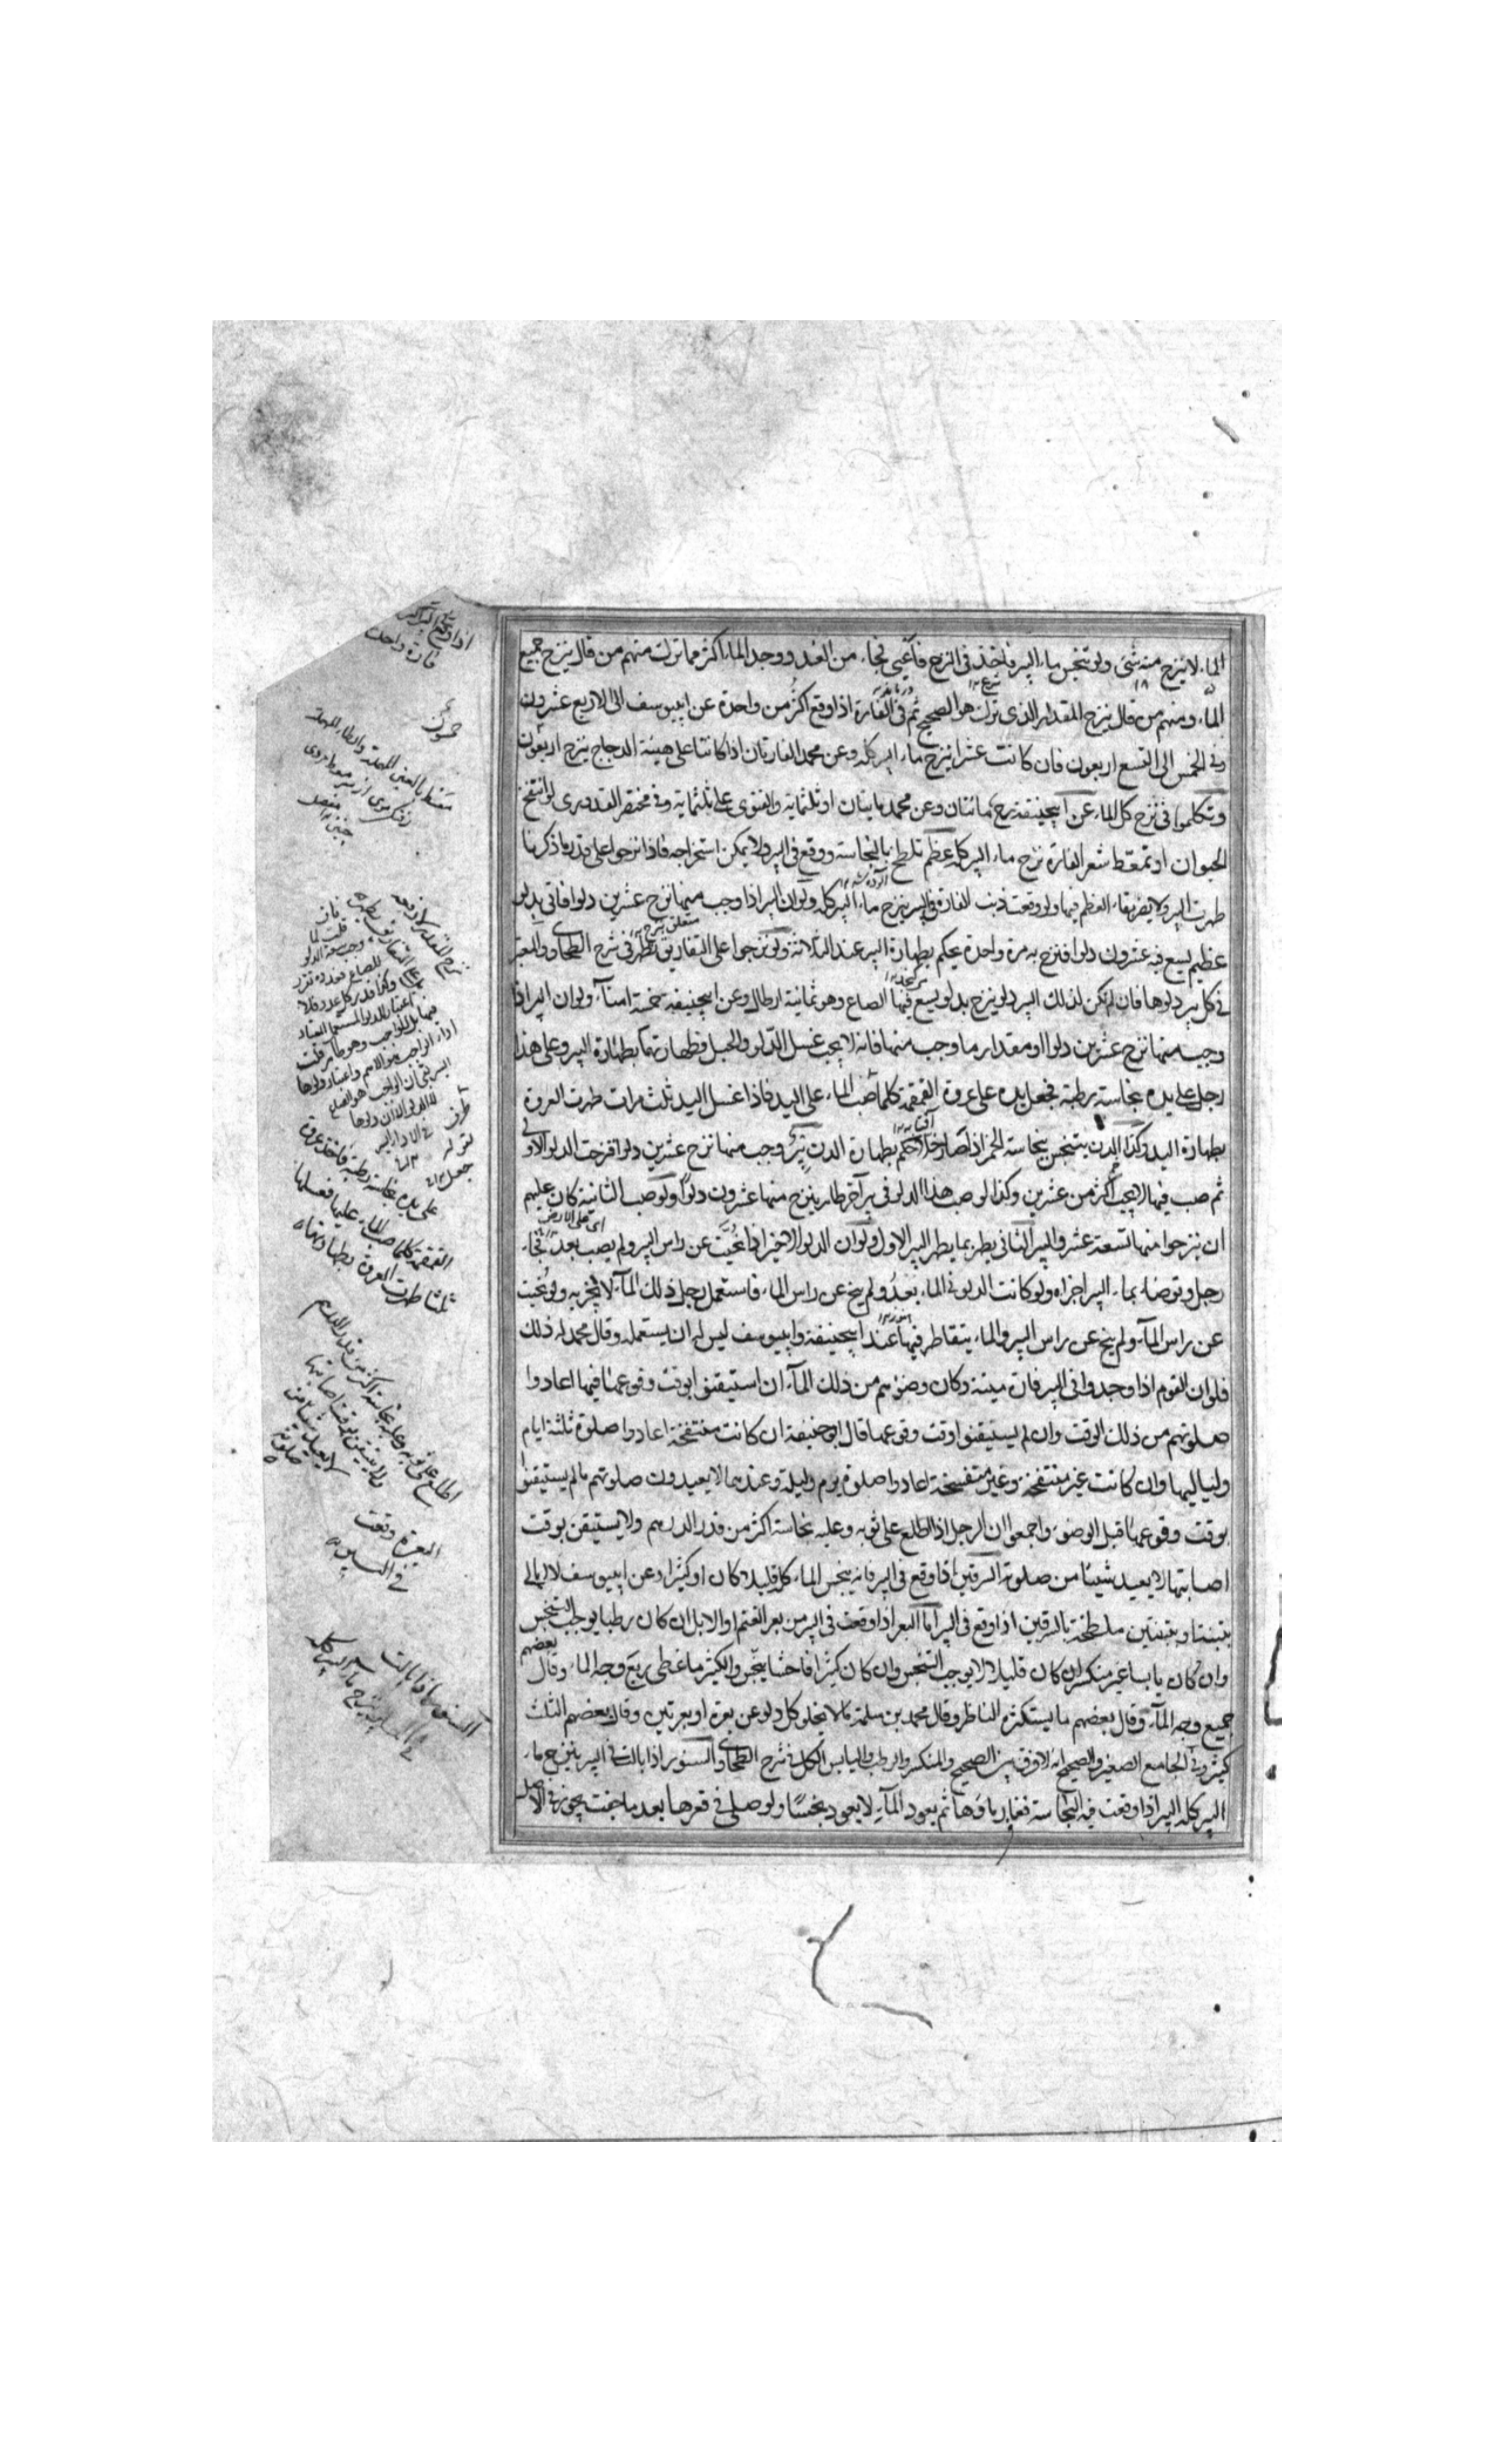 الماء لا ينزح منه شئ ولو تنجس ماء البير فاخذ في النزح فاعيي فجاء من الغد ووجد الماء اكثر مما ترك منهم من قال ينزح جميع
الماء ومنهم من قال ينزح المقدار الذي ترك هو الصحيح ثم في الفارة اذا وقع اكثر من واحدة عن ابيوسف الى الاربع عشرون
وفي الخمس الى التسع اربعون فان كانت عشرا ينزح ماء البير كله وعن محمد الفارتان اذا كانتا على هيئة الدجاج ينزح اربعون
وتكلموا في نزح كل الماء عن ابيحنيفة نزح مائتان وعن محمد مايتان او ثلثماية والفتوى على ثلثماية وفي مختصر القدوري لو انتفخ
الحيوان او تمعط شعر الفارة نزح ماء البير كله عظم تلطخ بالنجاسة ووقع في البير ولا يمكن استخراجه فاذا نزحوا على قدر ما ذكرنا
طهرت البير ولا يضر بقاء العظم فيها ولو وقعت ذنب الفارة في البير ينزح ماء البير كله ولو ان البير اذا وجب منها نزح عشرين دلوا فاتي بدلو
عظيم يسع فيه عشرون دلوا فنزح به مرة واحدة يحكم بطهارة البير عند الثلاثة ولو نزحوا على التفاريق تطهر في شرح الطحاوي والمعتبر
في كل بير دلوها فان لم تكن لذلك البير دلو ينزح بدلو يسع فيها الصاع وهو ثمانية ارطال وعن ابيحنيفة خمسة امنآء ولو ان البير اذا
وجب منها نزح عشرين دلوا او مقدار ما وجب منها فانه لا يجب غسل الدلو والحبل وطهارتهما بطهارة البير وعلى هذا
رجل على يده نجاسة رطبة فجعل يده على عروة القمقمة كلما صب الماء على اليد فاذا غسل اليد ثلث مرات طهرت العروة
بطهارة اليد وكذا الدن يتنجس بنجاسة الخمر اذا صار خلا حكم بطهارة الدن بير وجب منها نزح عشرين دلوا فنزحت الدلو الاولى
ثم صب فيها لا يجب اكثر من عشرين وكذا لو صب هذا الدلو في بير آخر طاهر ينزح منها عشرون دلوا ولو صب الثانية كان عليهم
ان ينزحوا منها تسعة عشر والبير الثاني يطهر بما يطهر البير الاول ولو ان الدلو الاخير اذا نحيت عن راس البير ولم يصب بعد فجاء
رجل وتوضاء بماء البير اجزاه ولو كانت الدلو في الماء بعد ولم ينح عن راس الماء فاستعمل رجل ذلك المآء لا يجزيه ولو نحيت
عن راس المآء ولم ينح عن راس البير والماء يتقاطر فيها عند ابيحنيفة وابيوسف ليس له ان يستعمله وقال محمد له ذلك
فلو ان القوم اذا وجدوا في البير فارة ميتة وكان وضوءهم من ذلك المآء ان استيقنوا بوقت وقوعها فيها اعادوا
صلوتهم من ذلك الوقت وان لم يستيقنوا وقت وقوعها قال ابوحنيفة ان كانت منتفخة اعادوا صلوة ثلثة ايام
ولياليها وان كانت غير منتفخة وغير متفسخة اعادوا صلوة يوم وليلة وعندهما لا يعيدون صلوتهم ما لم يستيقنوا
بوقت وقوعها قبل الوضوء واجمعوا ان الرجل اذا اطلع على ثوبه وعليه نجاسة اكثر من قدر الدرهم ولا يستيقن بوقت
اصابتها لا يعيد شيئا من صلوته السرقين اذا وقع في البير فانه ينجس الماء كله قليلا كان او كثيرا وعن ابيوسف لا ابالي
بتبنة او بتبنتين ملطخة بالسرقين اذا وقع في البير اما البعر اذا وقعت في البير من بعر الغنم او الابل ان كان رطبا يوجب التنجس
وان كان يابسا غير منكسر ان كان قليلا لا يوجب التنجس وان كان كثيرا فاحشا ينجس والكثير ما غطى ربع وجه الماء وقال بعضهم
جميع وجه المآء وقال بعضهم ما يستكثره الناظر وقال محمد بن سلمة ما لا يخلو كل دلو عن بعرة او بعرتين وقال بعضهم الثلث
كثير وفي الجامع الصغير والصحيح انه لا فرق بين الصحيح والمنكسر والرطب واليابس الكل في شرح الطحاوي السنور اذا بالت في البير ينزح ماء
البير كله البير اذا وقعت فيه النجاسة فغار ماؤها ثم يعود المآء لا يعود نجسا ولو صلى في قعرها بعد ما جفت يجوز في الاصل
اذا وقع في البير اكثر
فارة واحدة
البعرة وقعت
في البير
السنور اذا بالت
في البير ينزح مآء البير كله
اطلع على ثوبه وعليه نجاسة اكثر من قدر الدرهم
ولا يستيقن بوقت اصابتها
لا يعيد شيئا من
صلوته
على يده نجاسة رطبة فاخذ عروة
القمقمة كلما صب الماء عليها فغسلها
ثلثا طهرت العروة بطهارتها